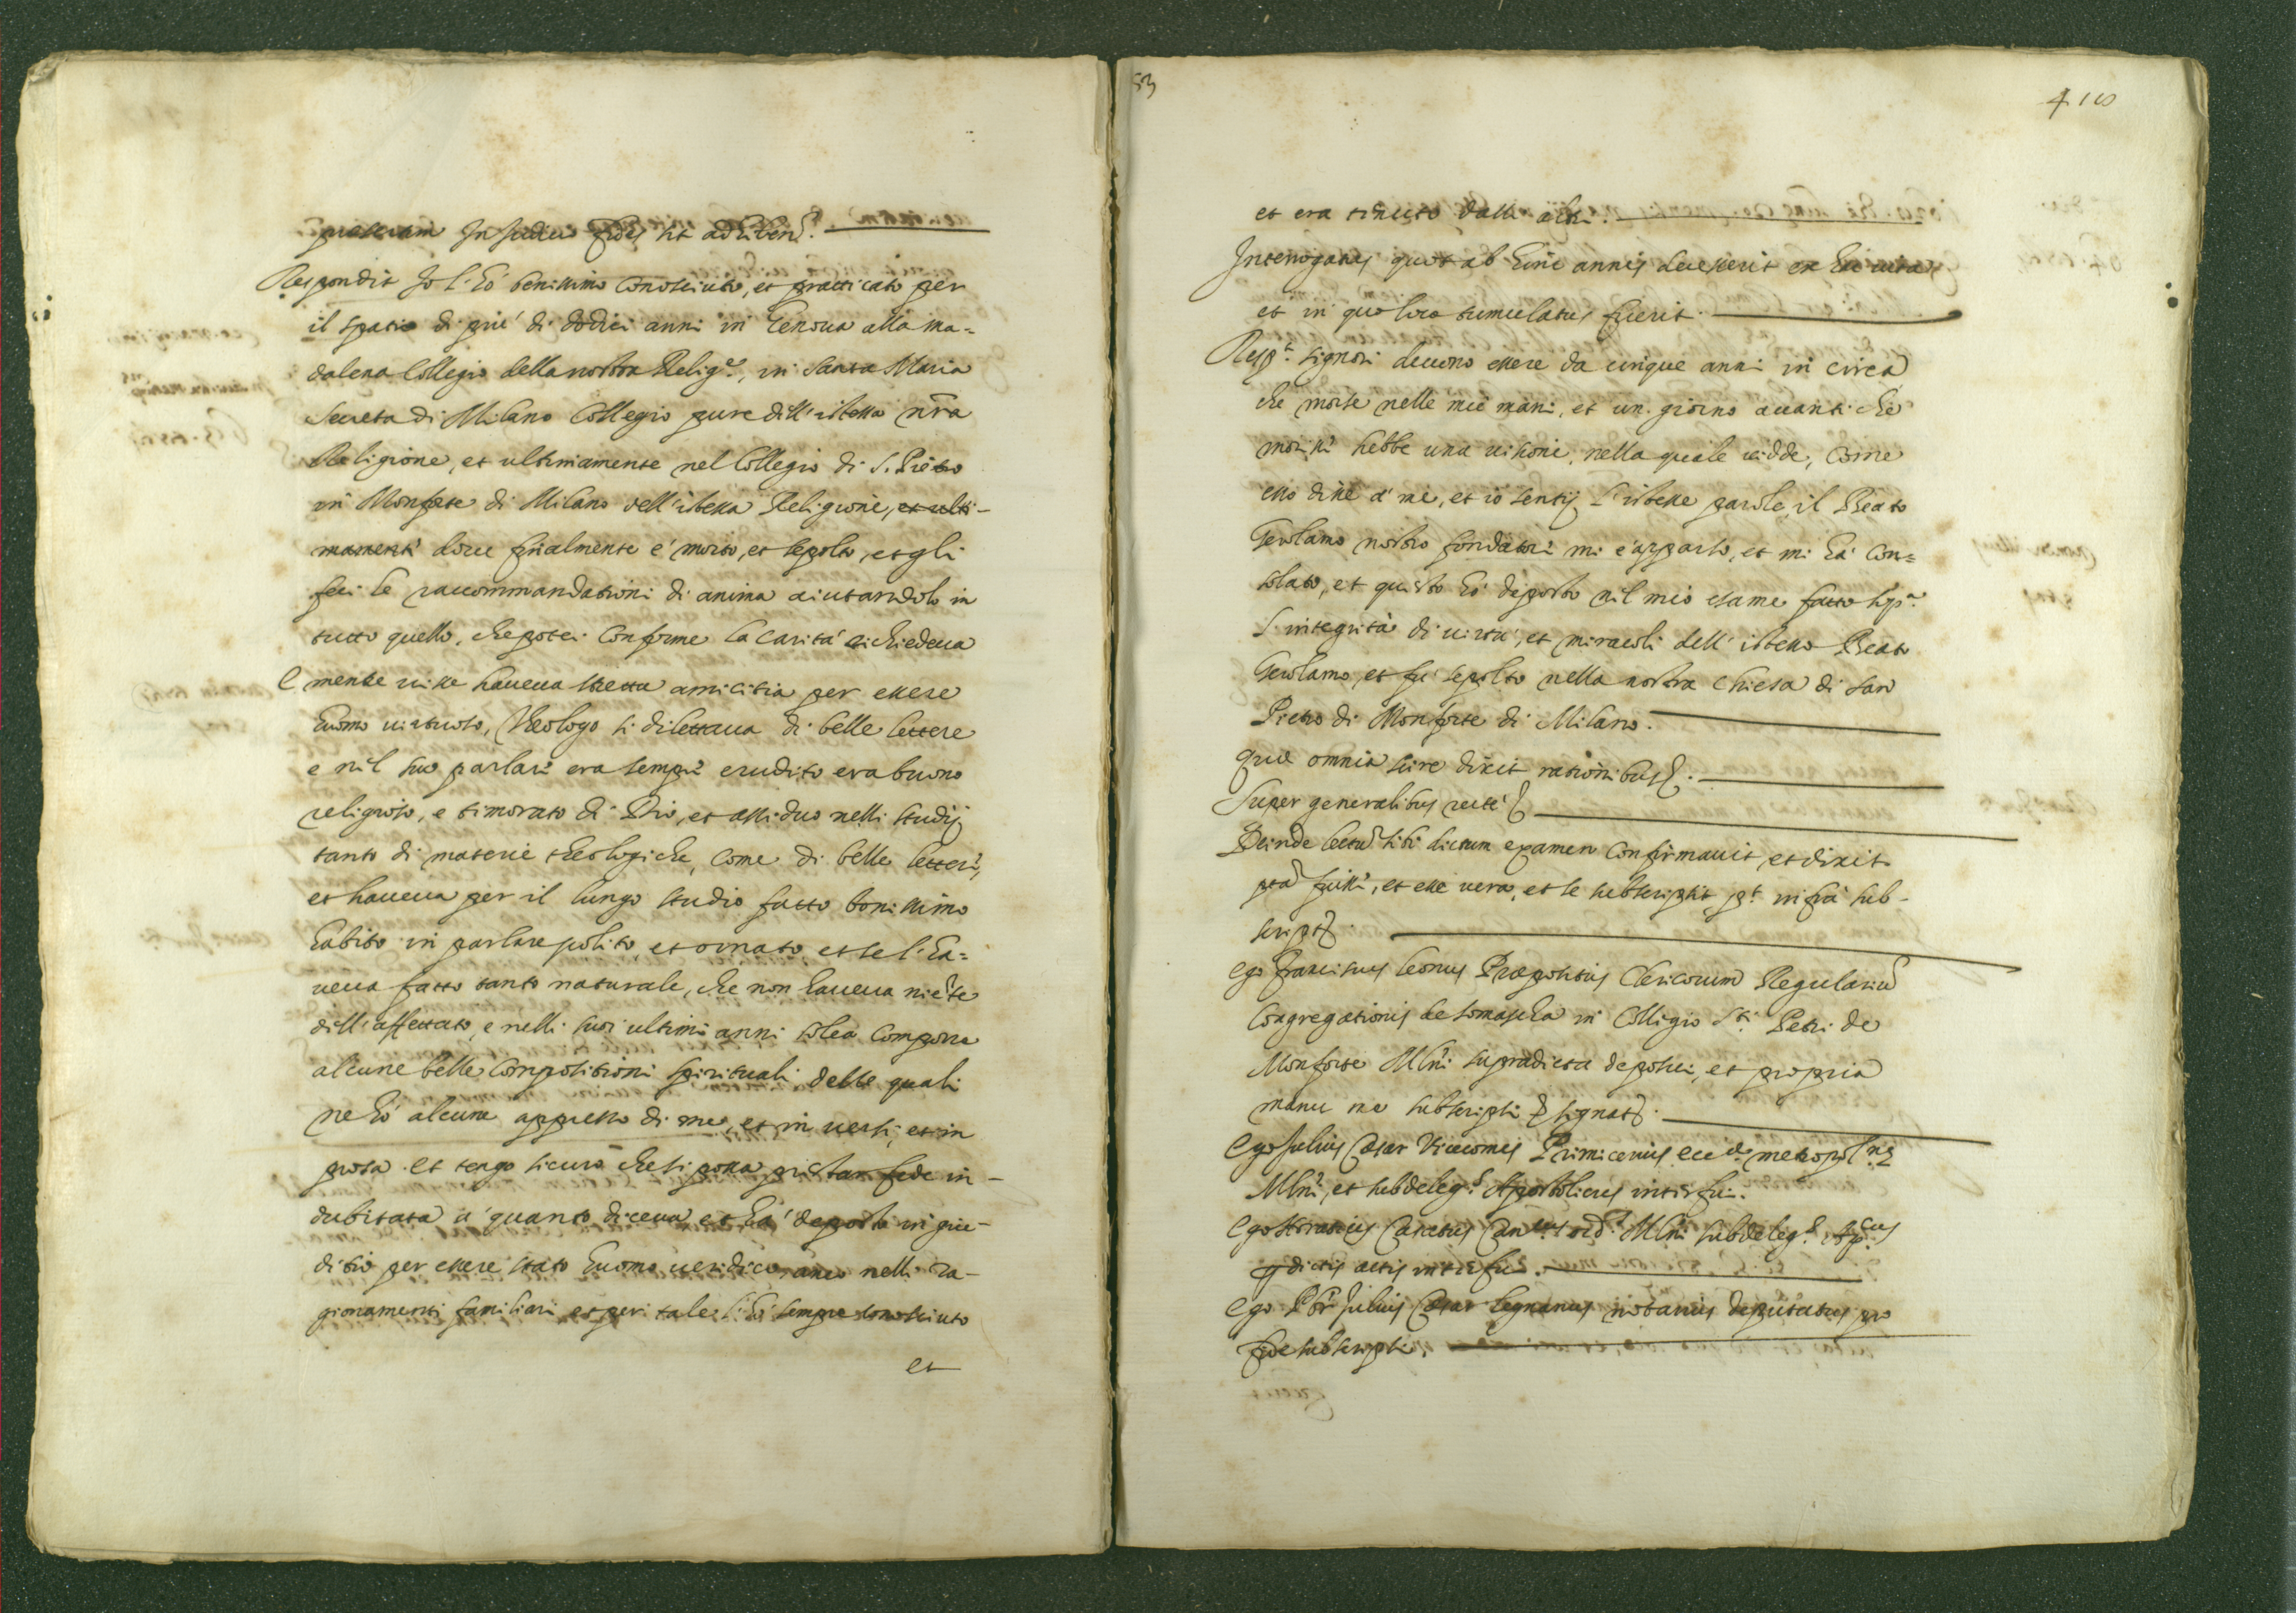 præsertim In Judicio fides sit adhibend.
Respondit Io l'hò benissimo conosciuto, et pratticato per
il spatio di più di dodici anni in Genoua alla Ma=
dalena Collegio della nostra Relig.e, in Santa Maria
Secreta di Milano Collegio pure dell'istessa nra
Religione, et ultimamente nel Collegio di S. Pietro
in Monforte di Milano dell'istessa Religione, et ulti-
mamente doue finalmente è morto, et sepolto, et gli
feci le raccommandationi di anima aiutandolo in
tutto quello, che potei conforme la carità richiedeua
e mentre uisse haueua stretta amicitia per essere
huomo uirtuoso, Theologo si dilettaua di belle lettere
e nel suo parlare era sempre erudito era buono
religioso, e timorato di Dio, et assiduo nelli studij
tanto di materie theologiche, come di belle lettere,
et haueua per il lungo studio fatto bonissimo
habito in parlare polito, et ornato, et se l'ha=
ueua fatto tanto naturale, che non haueua niẽte
dell'affettato, e nelli suoi ultimi anni solea comporre
alcune belle compositioni spirituali delle quali
ne hò alcune appresso di me, et in uersi, et in
prosa. et tengo sicuro che si possa prestar fede in-
dubitata à quanto diceua et hà deposto in giu-
ditio per essere stato huomo ueridico, anco nelli ra-
gionamenti familiari et per tale l'hò sempre conosciuto
et
53
4 110
et era tenuto dalli altri.
Interrogatus quot ab hinc annis decesserit ex hac uita
et in quo loco tumulatus fuerit.
Resp.t Signori deuono essere da cinque anni in circa
che morse nelle mie mani, et un giorno auanti che
morisse hebbe una uisione, nella quale uidde, come
esso disse à me, et io sentij l'istesse parole, il Beato
Gerolamo nostro fondatore mi è apparso, et mi hà con=
solato, et questo hò deposto nel mio esame fatto sup.a
l'integrità di uirtù, et miracoli dell'istesso Beato
Gerolamo, et fù sepolto nella nostra Chiesa di San
Pietro di Monforte di Milano.
Quæ omnia scire dixit rationibus
Super generalibus recte
Deinde lectu sibi dictum examen confirmauit, et dixit
pta fuisse, et esse uera, et se subscripsit pt infra sub-
script
Ego Franciscus Leonus Præpositus Clericorum Regulariu
Congregationis de Somascha in Collegio Sti Petri de
Monforte Mlni supradicta deposui, et propria
manu me subscripsi signat
Ego Julius Cæsar Vicecomes Primicerius metropolnæ
Mlni, et subdeleg.s Apostolicus interfui.
Ego Horatius Casatus Can.cus ord. Mlni subdeleg.s Ap.cus
dictis actis interfui.
Ego Pbr Julius Cæsar Legnanus notarius deputatus pro
fide subscripsi.